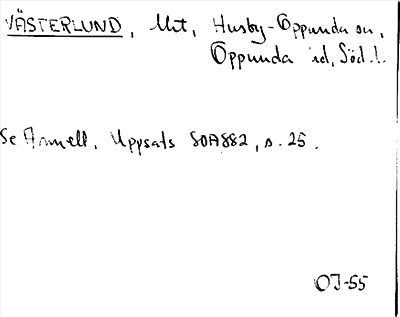 VÄSTERLUND, Unt, Husby-Oppunda sn,
Oppunda hd, Södl.
Se Armell, Uppsats SOA882, s. 25.
OJ-55